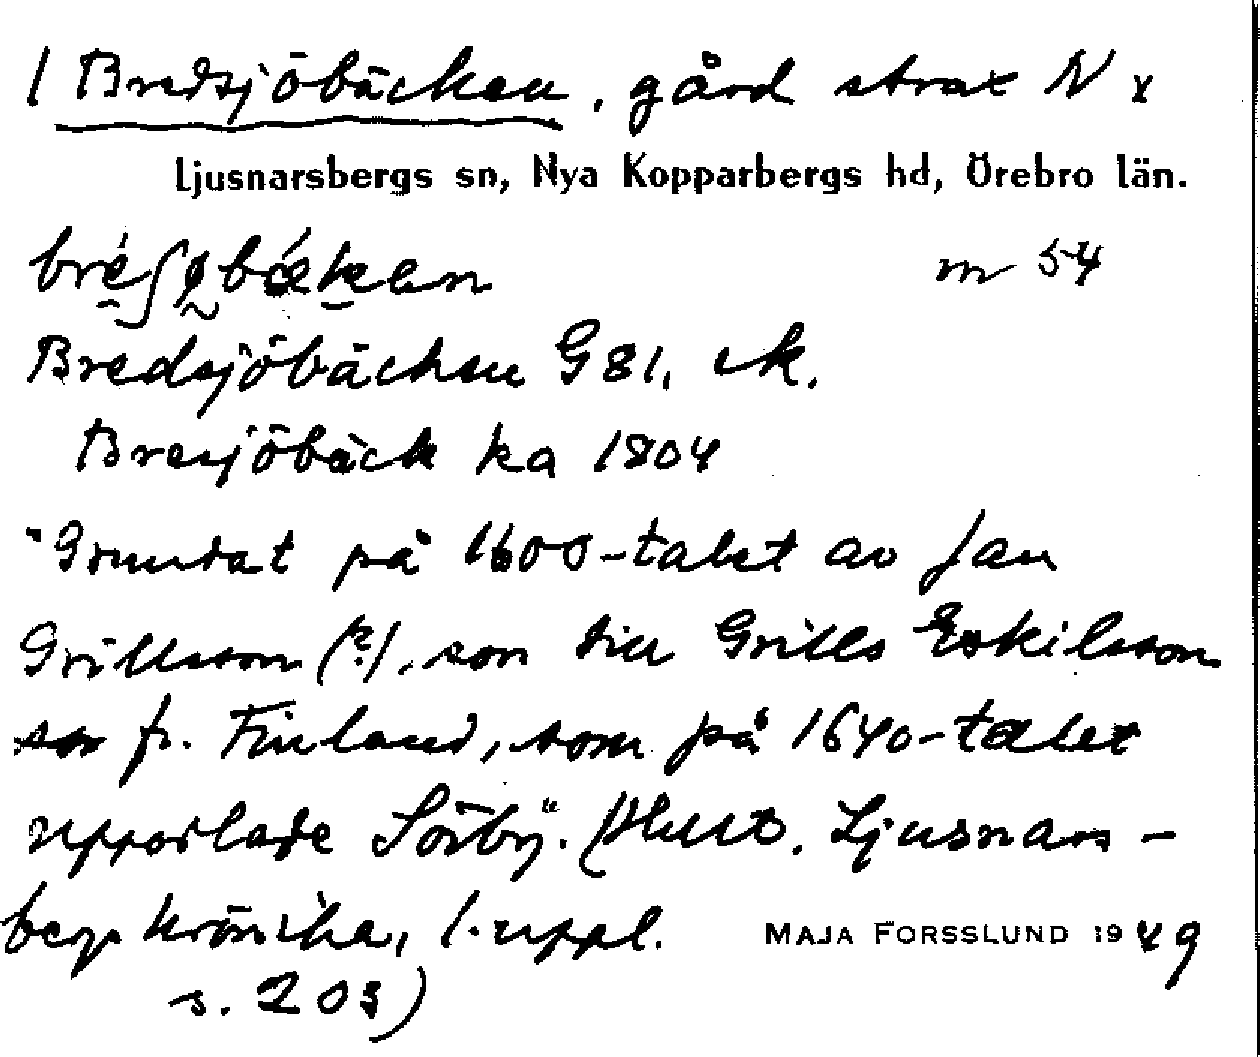 / Bredsjöbäcken, gård strax N x
Ljusnarsbergs sn, Nya Kopparbergs hd, Örebro län.
bréʃøbǽken m 54
Bredsjöbäcken G 81, ek.
Bresjöbäck ka 1804
"Grundat på 1600-talet av Jan
Grillsson (?), son till Grills Eskilsson
fr. Finland, som på 1640-talet
upporlade Sörby". (Hult. Ljusnars-
bergs krönika, 1. uppl. MAJA FORSSLUND 1949
s. 203)